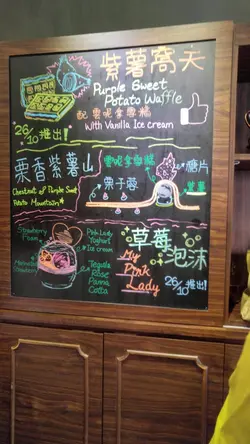 紫薯窩夫
Purple Sweet
Potato Waffle
配雲呢拿雪糕
With Vanilla Ice cream
26/10 推出!
栗香紫薯山
Chestnut of Purple Sweet
Potato Mountain
雲呢拿雪糕
栗子蓉
糖片
Strawberry
Foam
Pink Lady
Yoghurt
Ice cream
Marinated
Strawberry
Tequila
Rose
Panna
Cotta
草莓
泡沫
My
Pink
Lady
26/10 推出!